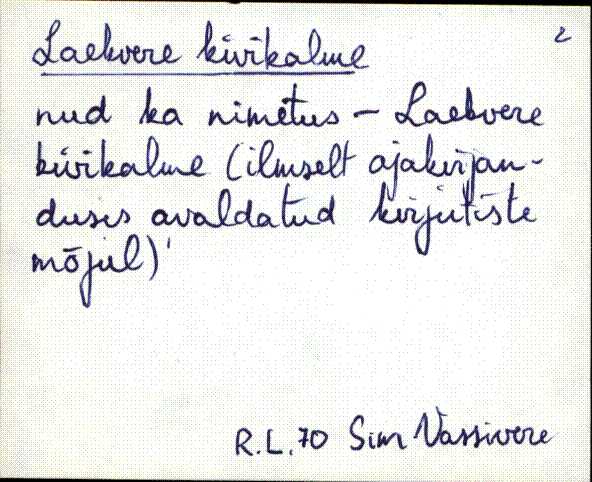 Laekvere kivikalme 2
nud ka nimetus – Laekvere
kivikalme (ilmselt ajakirjan-
duses avaldatud kirjutiste
mõjul)
R.L.70 Sim Vassivere